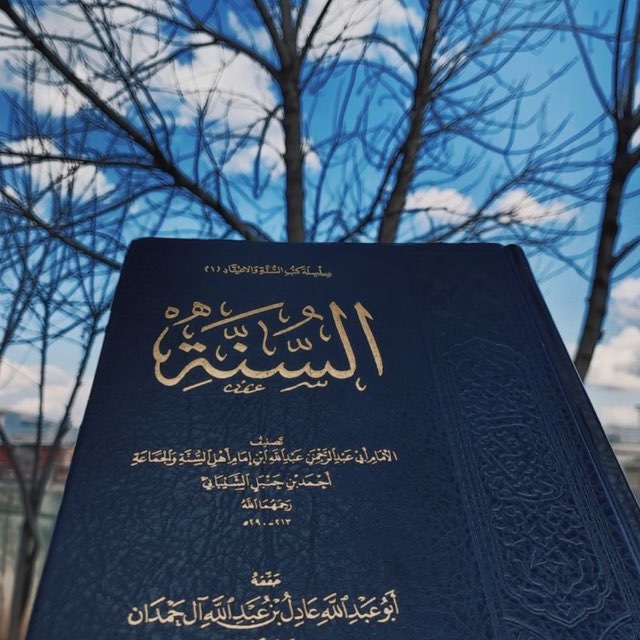 سلسلة كتب السنة والاعتقاد (٢١)
السُّنَّةِ
تصنيف
الإمام أبي عبد الرحمن عبد الله ابن إمام أهل السنة والجماعة
أحمد بن حنبل الشيباني
رحمهما الله
٢١٣-٢٩٠هـ
حققه
أبو عبد الله عادل بن عبد الله آل حمدان